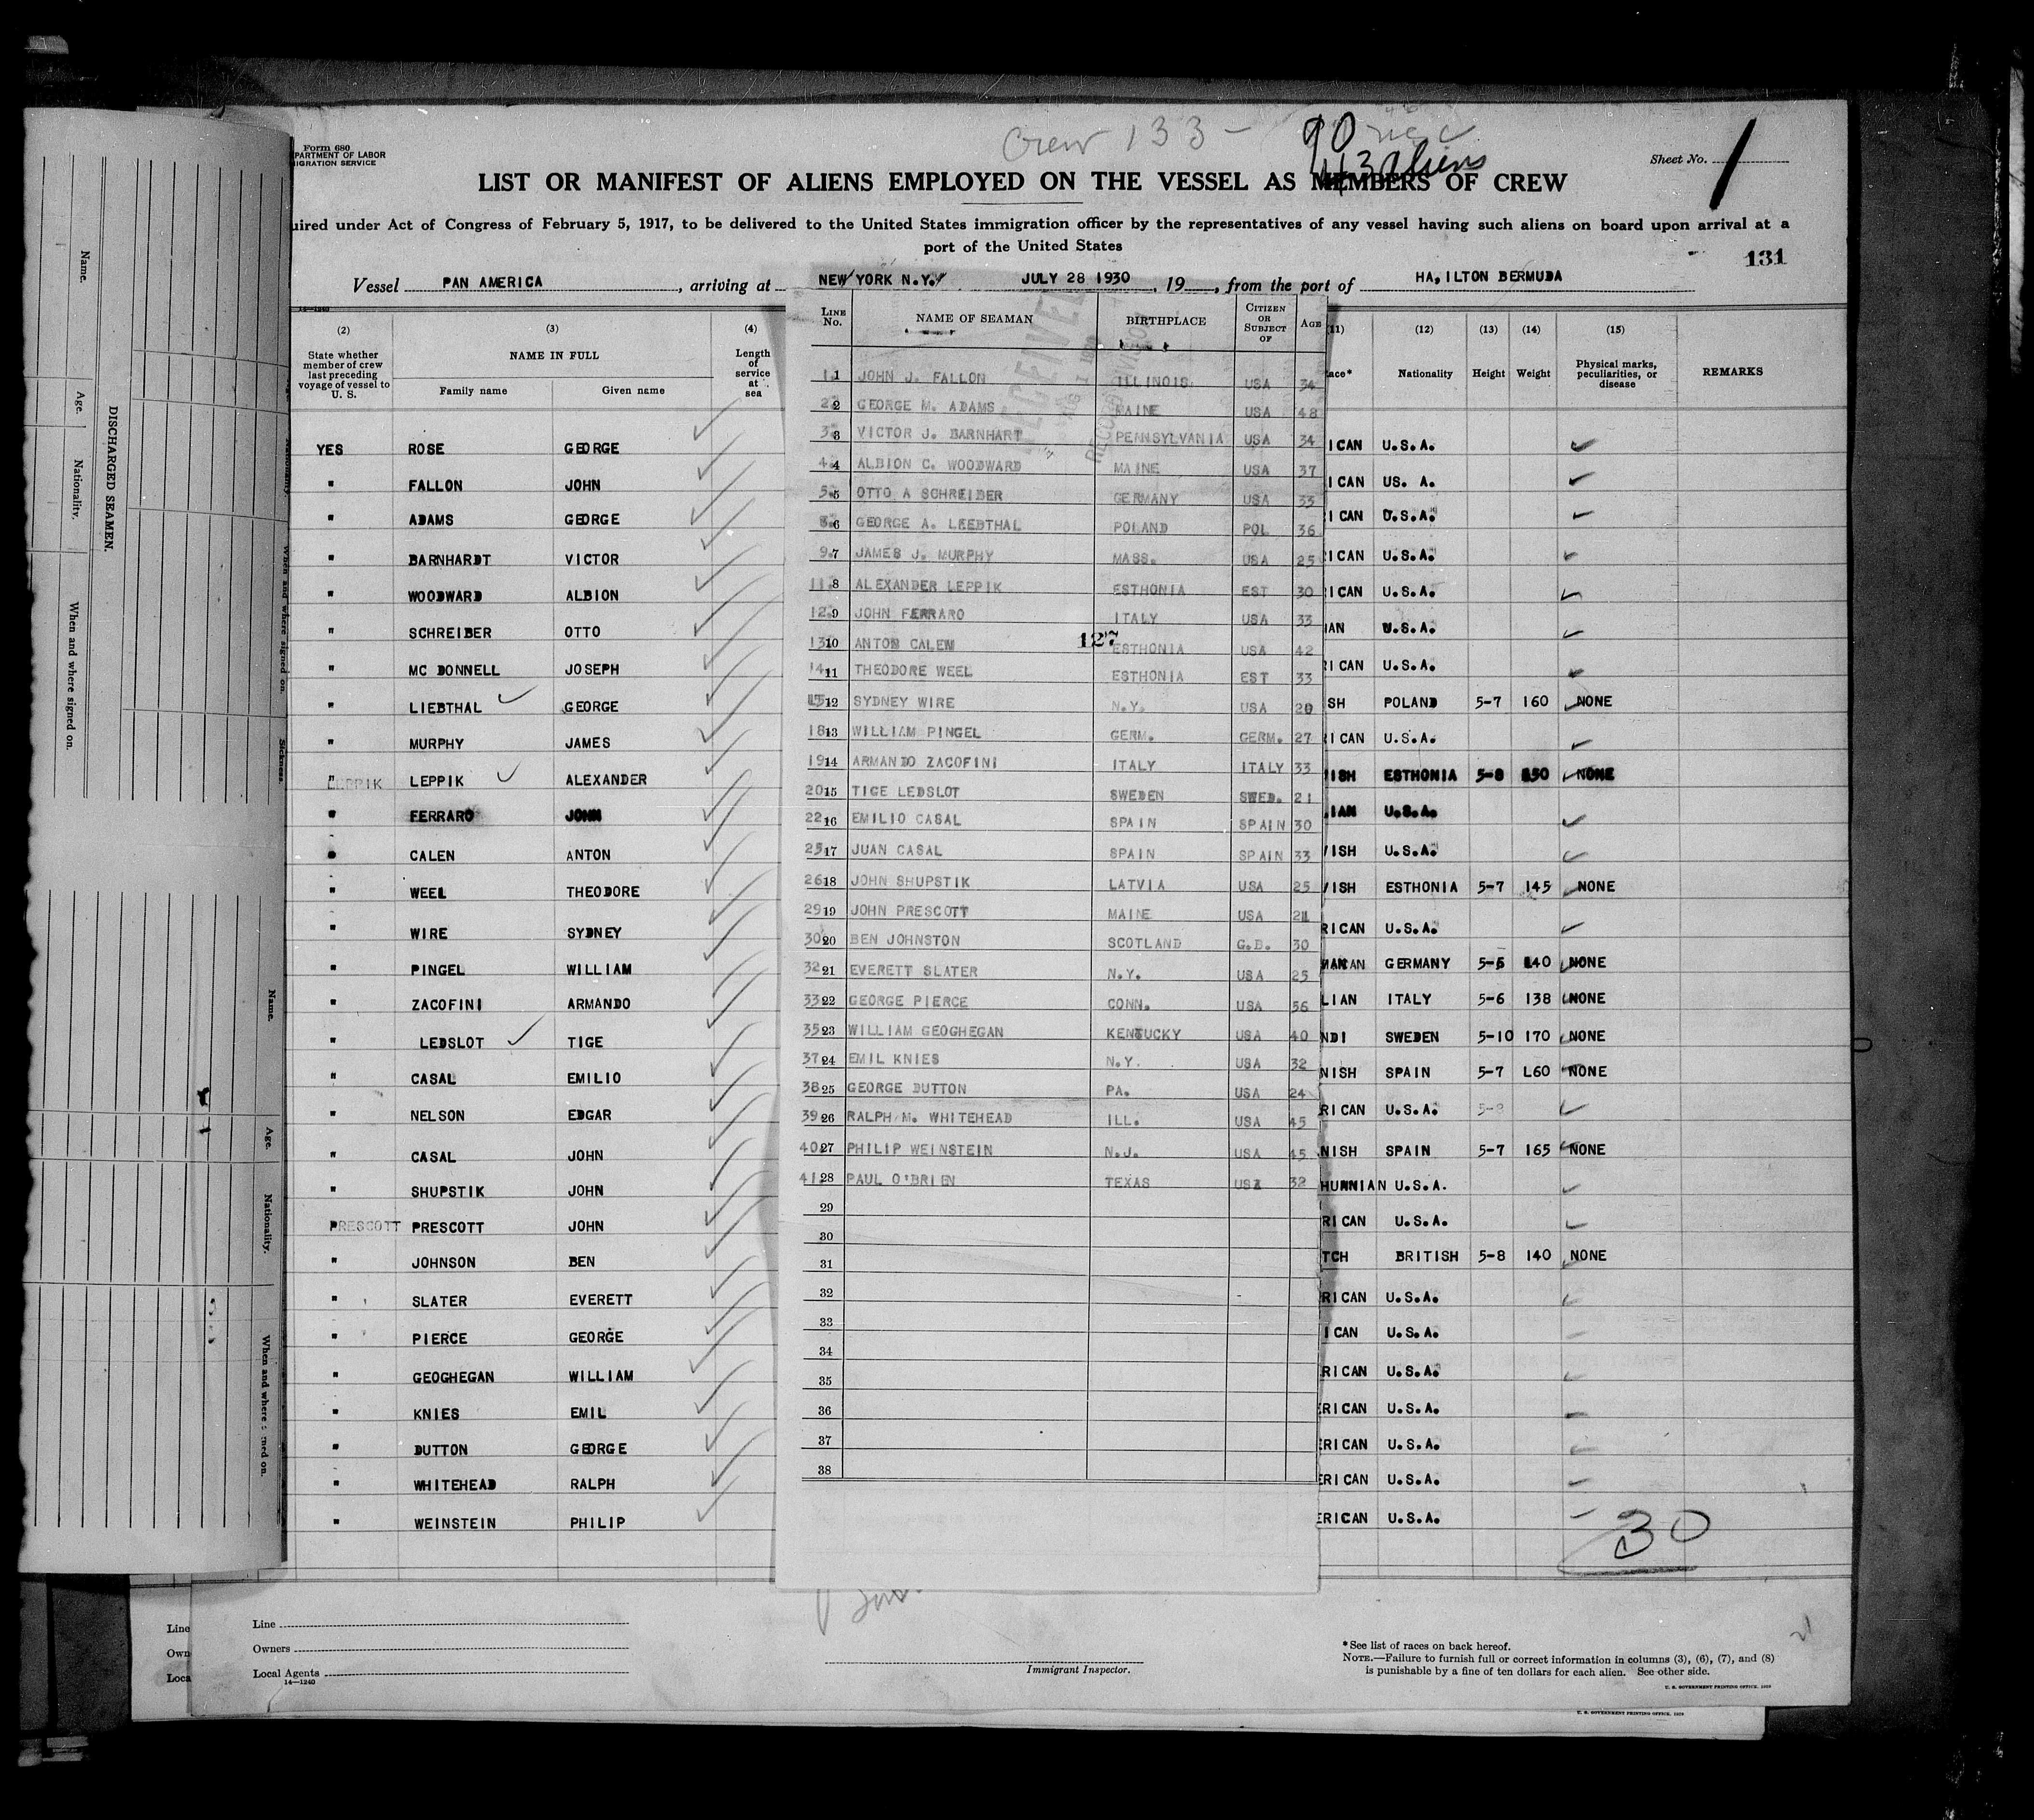 Crew 133 -
90
43 aliens
Form 680
PARTMENT OF LABOR
IGRATION SERVICE
Sheet No. 1
LIST OR MANIFEST OF ALIENS EMPLOYED ON THE VESSEL AS MEMBERS OF CREW
uired under Act of Congress of February 5, 1917, to be delivered to the United States immigration officer by the representatives of any vessel having such aliens on board upon arrival at a
port of the United States
131
Vessel PAN AMERICA, arriving at NEW YORK N.Y. JULY 28 1930, 19, from the port of HA,ILTON BERMUDA
14—1240
(2) (3) (4)
State whether member of crew last preceding voyage of vessel to U. S.
NAME IN FULL
Family name Given name
Length of service at sea
YES ROSE GEORGE
" FALLON JOHN
" ADAMS GEORGE
" BARNHARDT VICTOR
" WOODWARD ALBION
" SCHREIBER OTTO
" MC DONNELL JOSEPH
" LIEBTHAL GEORGE
" MURPHY JAMES
" LEPPIK LEPPIK ALEXANDER
" FERRARO JOHN
" CALEN ANTON
" WEEL THEODORE
" WIRE SYDNEY
" PINGEL WILLIAM
" ZACOFINI ARMANDO
" LEDSLOT TIGE
" CASAL EMILIO
" NELSON EDGAR
" CASAL JOHN
" SHUPSTIK JOHN
PRESCOTT PRESCOTT JOHN
" JOHNSON BEN
" SLATER EVERETT
" PIERCE GEORGE
" GEOGHEGAN WILLIAM
" KNIES EMIL
" DUTTON GEORGE
" WHITEHEAD RALPH
" WEINSTEIN PHILIP
LINE No. NAME OF SEAMAN BIRTHPLACE CITIZEN OR SUBJECT OF AGE
RECEIVED
1 JOHN J. FALLON ILLINOIS USA 34
2 GEORGE M. ADAMS MAINE USA 48
3 VICTOR J. BARNHART PENNSYLVANIA USA 34
4 ALBION C. WOODWARD MAINE USA 37
5 OTTO A SCHREIBER GERMANY USA 33
6 GEORGE A. LEEBTHAL POLAND POL 36
9. 7 JAMES J. MURPHY MASS. USA 25
11 8 ALEXANDER LEPPIK ESTHONIA EST 30
12 9 JOHN FERRARO ITALY USA 33
13 10 ANTON CALEN 127 ESTHONIA USA 42
14 11 THEODORE WEEL ESTHONIA EST 33
12 SYDNEY WIRE N.Y. USA 20
18 13 WILLIAM PINGEL GERM. GERM. 27
19 14 ARMANDO ZACOFINI ITALY ITALY 33
20 15 TIGE LEDSLOT SWEDEN SWED. 21
22 16 EMILIO CASAL SPAIN SPAIN 30
25 17 JUAN CASAL SPAIN SPAIN 33
26 18 JOHN SHUPSTIK LATVIA USA 25
29 19 JOHN PRESCOTT MAINE USA 21
30 20 BEN JOHNSTON SCOTLAND G.B. 30
32 21 EVERETT SLATER N.Y. USA 25
33 22 GEORGE PIERCE CONN. USA 56
35 23 WILLIAM GEOGHEGAN KENTUCKY USA 40
37 24 EMIL KNIES N.Y. USA 32
38 25 GEORGE DUTTON PA. USA 24
39 26 RALPH M. WHITEHEAD ILL. USA 45
40 27 PHILIP WEINSTEIN N.J. USA 45
41 28 PAUL O'BRIEN TEXAS USA 32
29
30
31
32
33
34
35
36
37
38
(11) (12) (13) (14) (15)
ace* Nationality Height Weight Physical marks, peculiarities, or disease REMARKS
ICAN U.S.A.
ICAN US. A.
ICAN U.S.A.
ICAN U.S.A.
ICAN U.S.A.
AN U.S.A.
ICAN U.S.A.
SH POLAND 5-7 160 NONE
ICAN U.S.A.
ISH ESTHONIA 5-8 150 NONE
IAN U.S.A.
ISH U.S.A.
ISH ESTHONIA 5-7 145 NONE
RICAN U.S.A.
GERMANY 5-5 140 NONE
LIAN ITALY 5-6 138 NONE
NDI SWEDEN 5-10 170 NONE
NISH SPAIN 5-7 L60 NONE
RICAN U.S.A.
NISH SPAIN 5-7 165 NONE
HUNNIAN U.S.A.
RICAN U.S.A.
TCH BRITISH 5-8 140 NONE
RICAN U.S.A.
ICAN U.S.A.
RICAN U.S.A.
ERICAN U.S.A.
ERICAN U.S.A.
ERICAN U.S.A.
ERICAN U.S.A.
30
Name. Age. Nationality. When and where signed on.
DISCHARGED SEAMEN.
Nationality. When and where signed on. Sickness.
Name. Age. Nationality. When and where signed on.
Line
Own
Loca
Line
Owners
Local Agents
14—1240
Immigrant Inspector.
*See list of races on back hereof.
NOTE.—Failure to furnish full or correct information in columns (3), (6), (7), and (8)
is punishable by a fine of ten dollars for each alien. See other side.
U. S. GOVERNMENT PRINTING OFFICE
U. S. GOVERNMENT PRINTING OFFICE